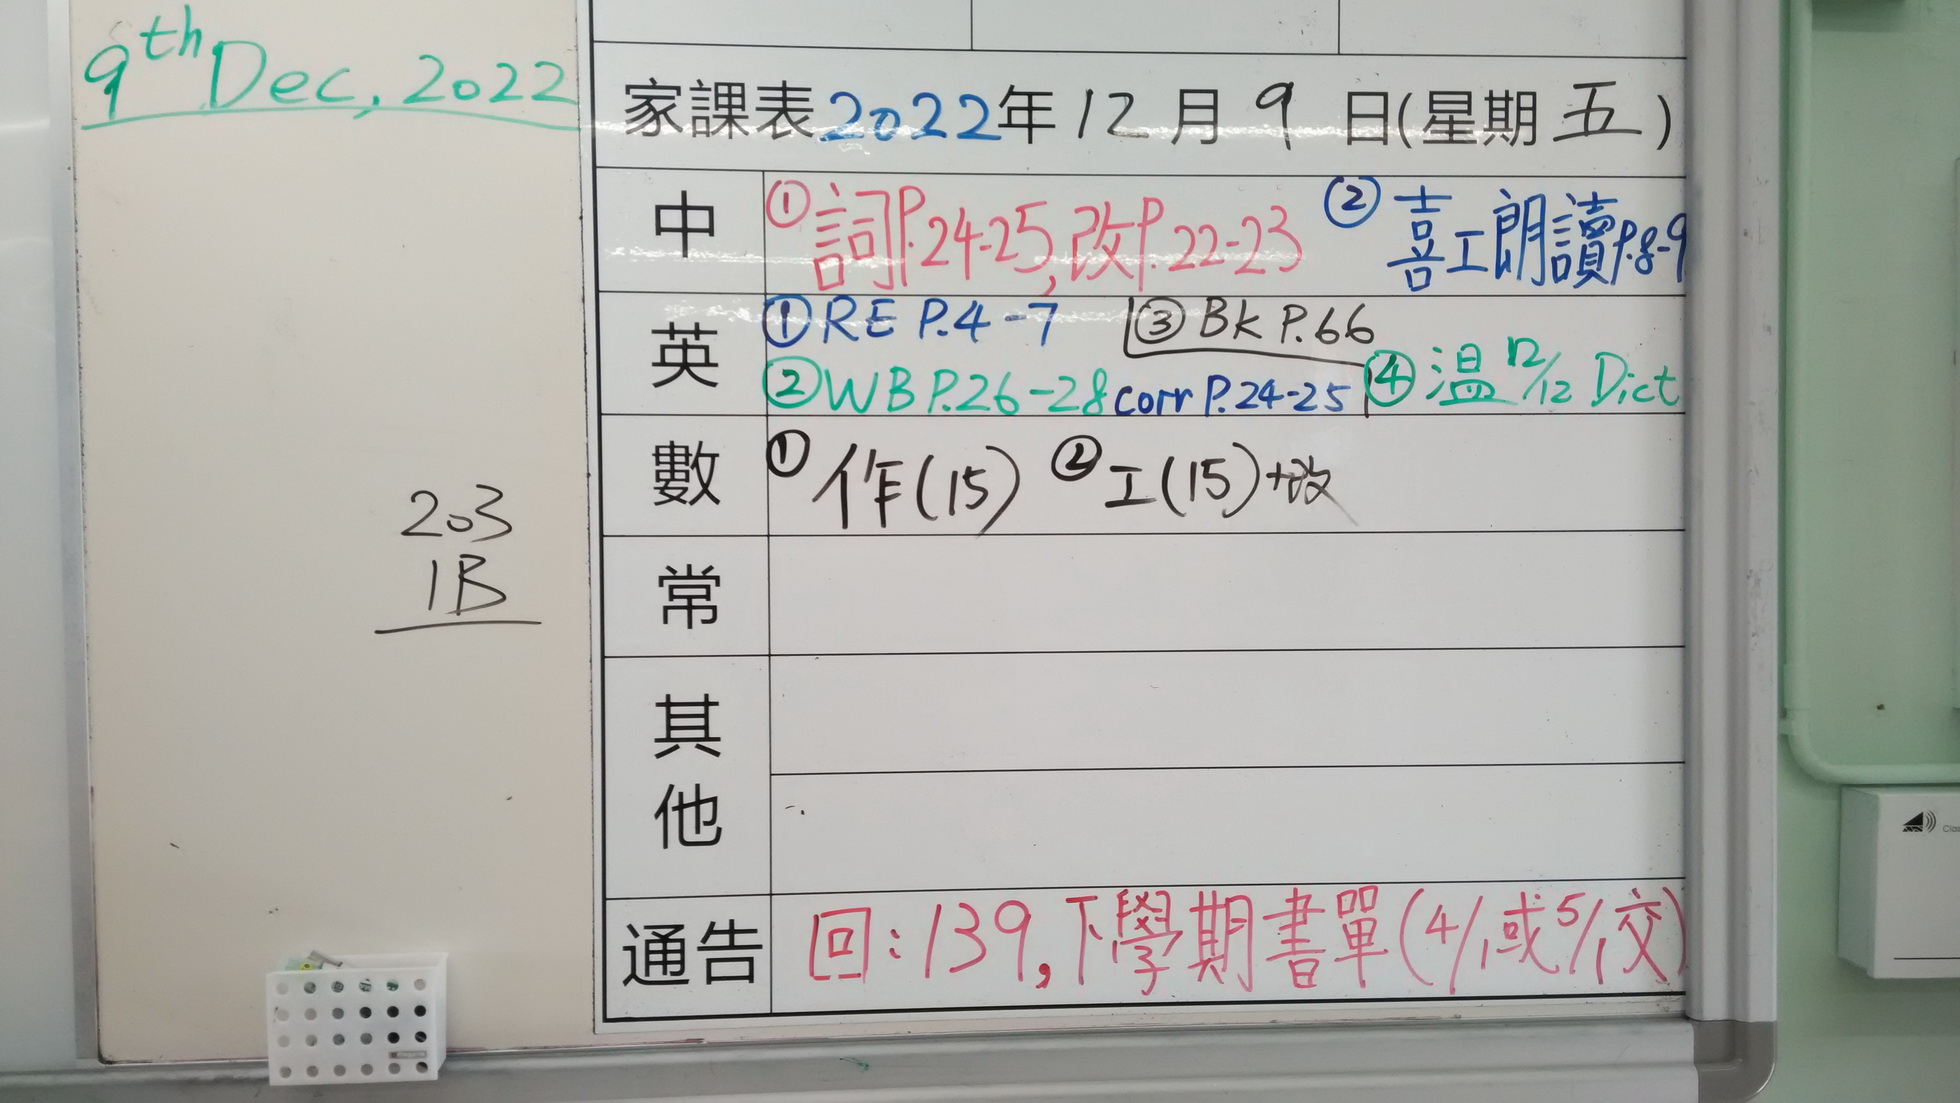 9th Dec, 2022
203
1B
家課表2022年12月9日(星期五)
中 ①詞P.24-25,改P.22-23 ②喜工朗讀P.8-9
英 ①RE P.4-7 ③BK P.66
②WB P.26-28 corr P.24-25 ④温12/12 Dict
數 ①作(15) ②工(15)+改
常
其他
通告 回:139,下學期書單(4/1或5/1交)